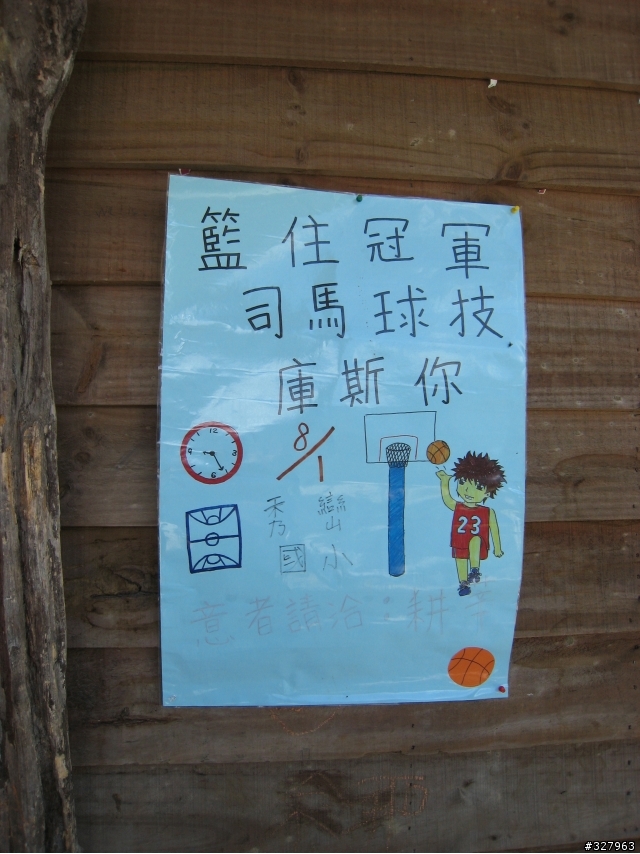 籃 住 冠 軍
司 馬 球 技
庫 斯 你
12
3
6
9
8/1
秀 巒
國 小
23
意 者 請 洽 : 耕 莘
#327963